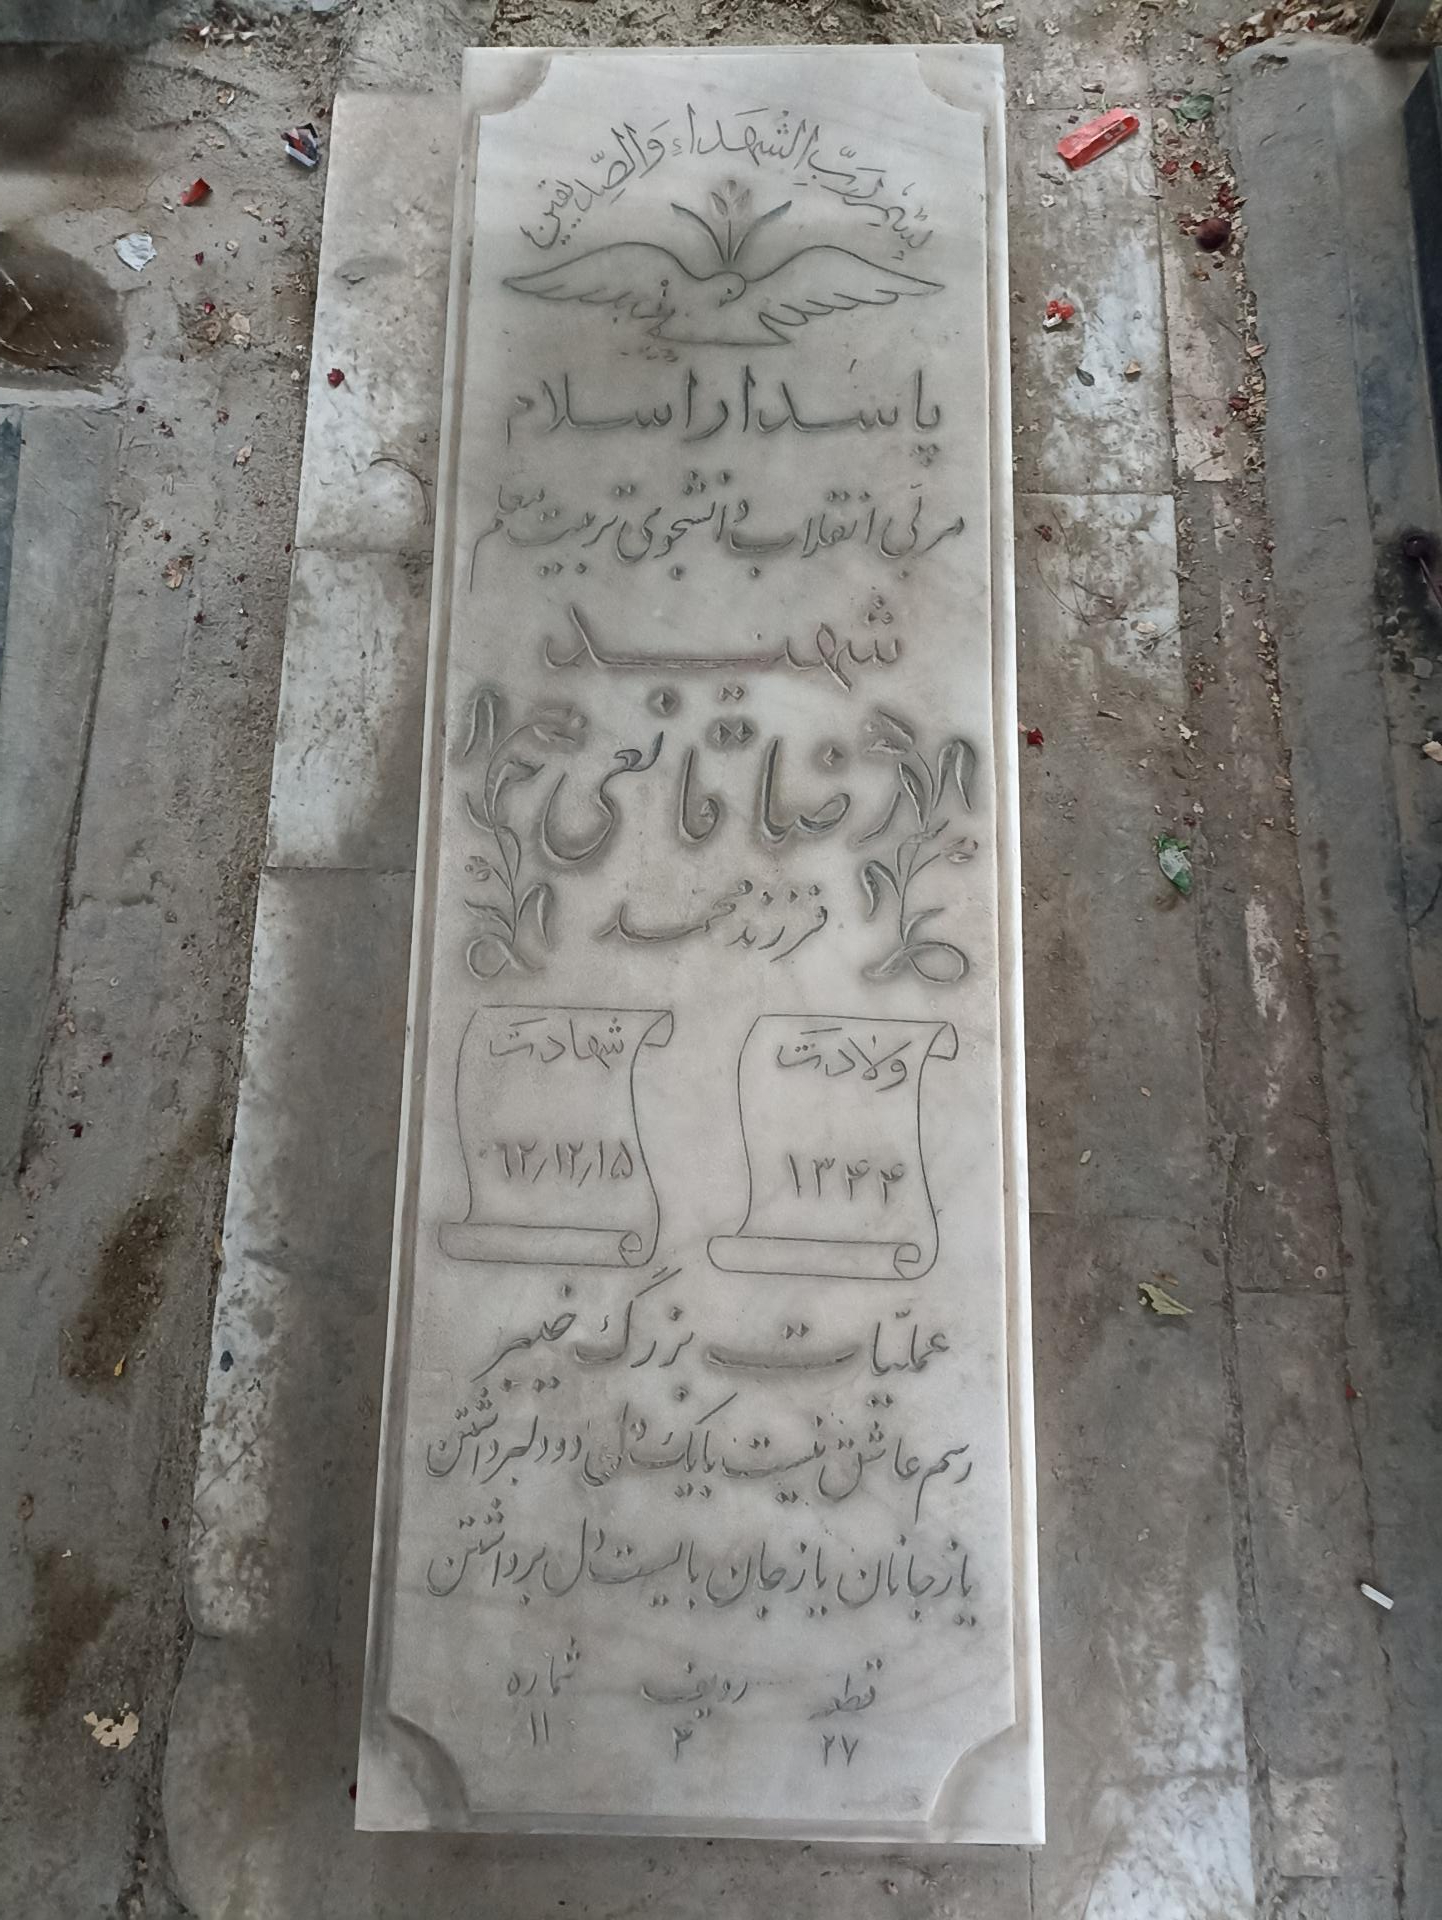 بِسْمِ رَبِّ الشهَداءِ وَالصِّدیقین
پاسدار اسلام
مربی انقلاب دانشجوی تربیت معلم
شهید
رضا قانعی
فرزند محمد
ولادت
۱۳۴۴
شهادت
۶۲٫۱۲٫۱۵
عملیّات بزرگ خیبر
رسم عاشق نیست با یک دل دو دلبر داشتن
یا ز جانان یا ز جان بایست دل برداشتن
قطعه ردیف شماره
۲۷ ۳ ۱۱